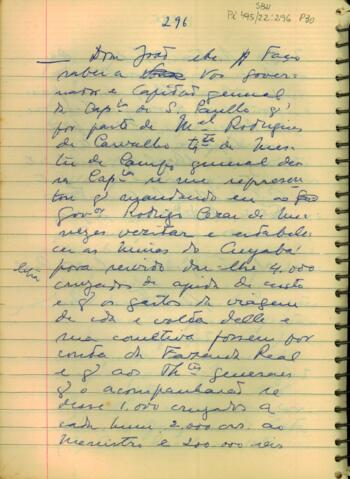 296
SBH
Pi 495/22:296 P30
— Dom João etc // Faço
saber a Vos Gover-
nador e Capitão general
da Capᵗᵃ de S. Paullo q'
por parte de Mᵉˡ Rodrigues
de Carvalho Tᵗᵉ de Mes-
tre de Campo general des-
sa Capⁿⁱᵃ se me represen-
tou q' mandando eu ao
Govᵒʳ Rodrigo Cezar de Me-
nezes vezitar e estabele-
cer as minas do Cuyabá
fora servido dar-lhe 4.000
cruzados de ajuda de custo
e q' os gastos da viagem
de ida e volta delle e
sua comitiva fossem por
conta da Fazenda Real
e q' aos Thᵉˢ generaes
q' o acompanharão se
desse 1.000 cruzados a
cada hum 2.000 crs. ao
Menistro e 200.000 reis